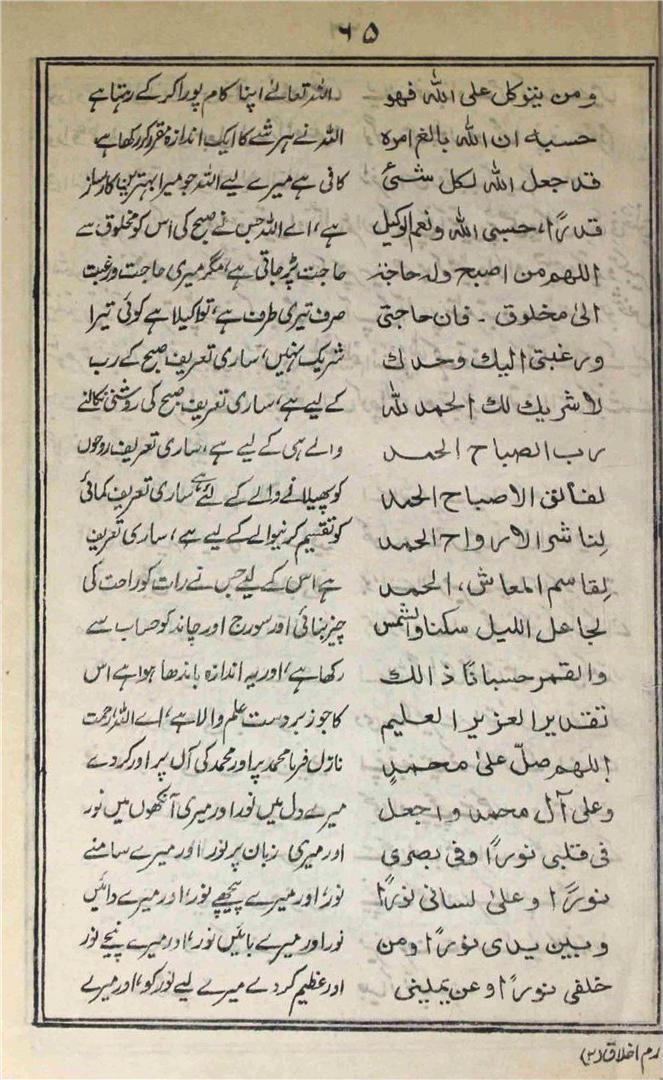 ۶۵
ومن یتوکل علی اللہ فہو
حسبہ ان اللہ بالغ امرہ
قد جعل اللہ لکل شیٔ
قدرًا، حسبی اللہ ونعم الوکیل
اللہم من اصبح ولہ حاجۃ
الیٰ مخلوق ۔ فان حاجتی
ورغبتی الیک وحدک
لاشریک لک الحمد للہ
رب الصباح الحمد
لفالق الاصباح الحمد
لِناشر الارواح الحمد
لِقاسم المعاش، الحمد
لجاعل اللیل سکنا والشمس
والقمر حسبانًا ذالک
تقدیر العزیز العلیم
اللہم صلّ علیٰ محمدٍ
وعلی آل محمد واجعل
فی قلبی نورًا وفی بصری
نورًا وعلیٰ لسانی نورًا
وبین یدی نورًا ومن
خلفی نورًا وعن یمینی
اللہ تعالےٰ اپنا کام پورا کرکے رہتا ہے
اللہ نے ہر شے کا ایک اندازہ مقرر کر رکھا ہے
کافی ہے میرے لیے اللہ جو میرا بہترین کارساز
ہے، اے اللہ جس نے صبح کی اس کو مخلوق سے
حاجت پڑ جاتی ہے، مگر میری حاجت ورغبت
صرف تیری طرف ہے، تو اکیلا ہے کوئی تیرا
شریک نہیں، ساری تعریف صبح کے رب
کے لیے ہے، ساری تعریف صبح کی روشنی نکالنے
والے ہی کے لیے ہے، ساری تعریف روحوں
کو پھیلانے والے کے لئے ہے ساری تعریف کمائی
کو تقسیم کرنیوالے کے لیے ہے، ساری تعریف
ہے اس کے لیے جس نے رات کو راحت کی
چیز بنائی اور سورج اور چاند کو حساب سے
رکھا ہے، اور یہ اندازہ باندھا ہوا ہے اس
کا جو زبردست علم والا ہے، اے اللہ! رحمت
نازل فرما محمد پر اور محمد کی آل پر اور کردے
میرے دل میں نور اور میری آنکھوں میں نور
اور میری زبان پر نور اور میرے سامنے
نور، اور میرے پیچھے نور، اور میرے دائیں
نور اور میرے بائیں نور، اور میرے نیچے نور
اور عظیم کردے میرے لیے نور کو، اور میرے
اخلاق (۲)